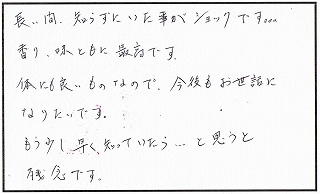 長い間、知らずにいた事がショックです…。
香り、味ともに最高です。
体にも良いものなので、今後もお世話に
なりたいです。
もう少し早く知っていたら…と思うと
残念です。